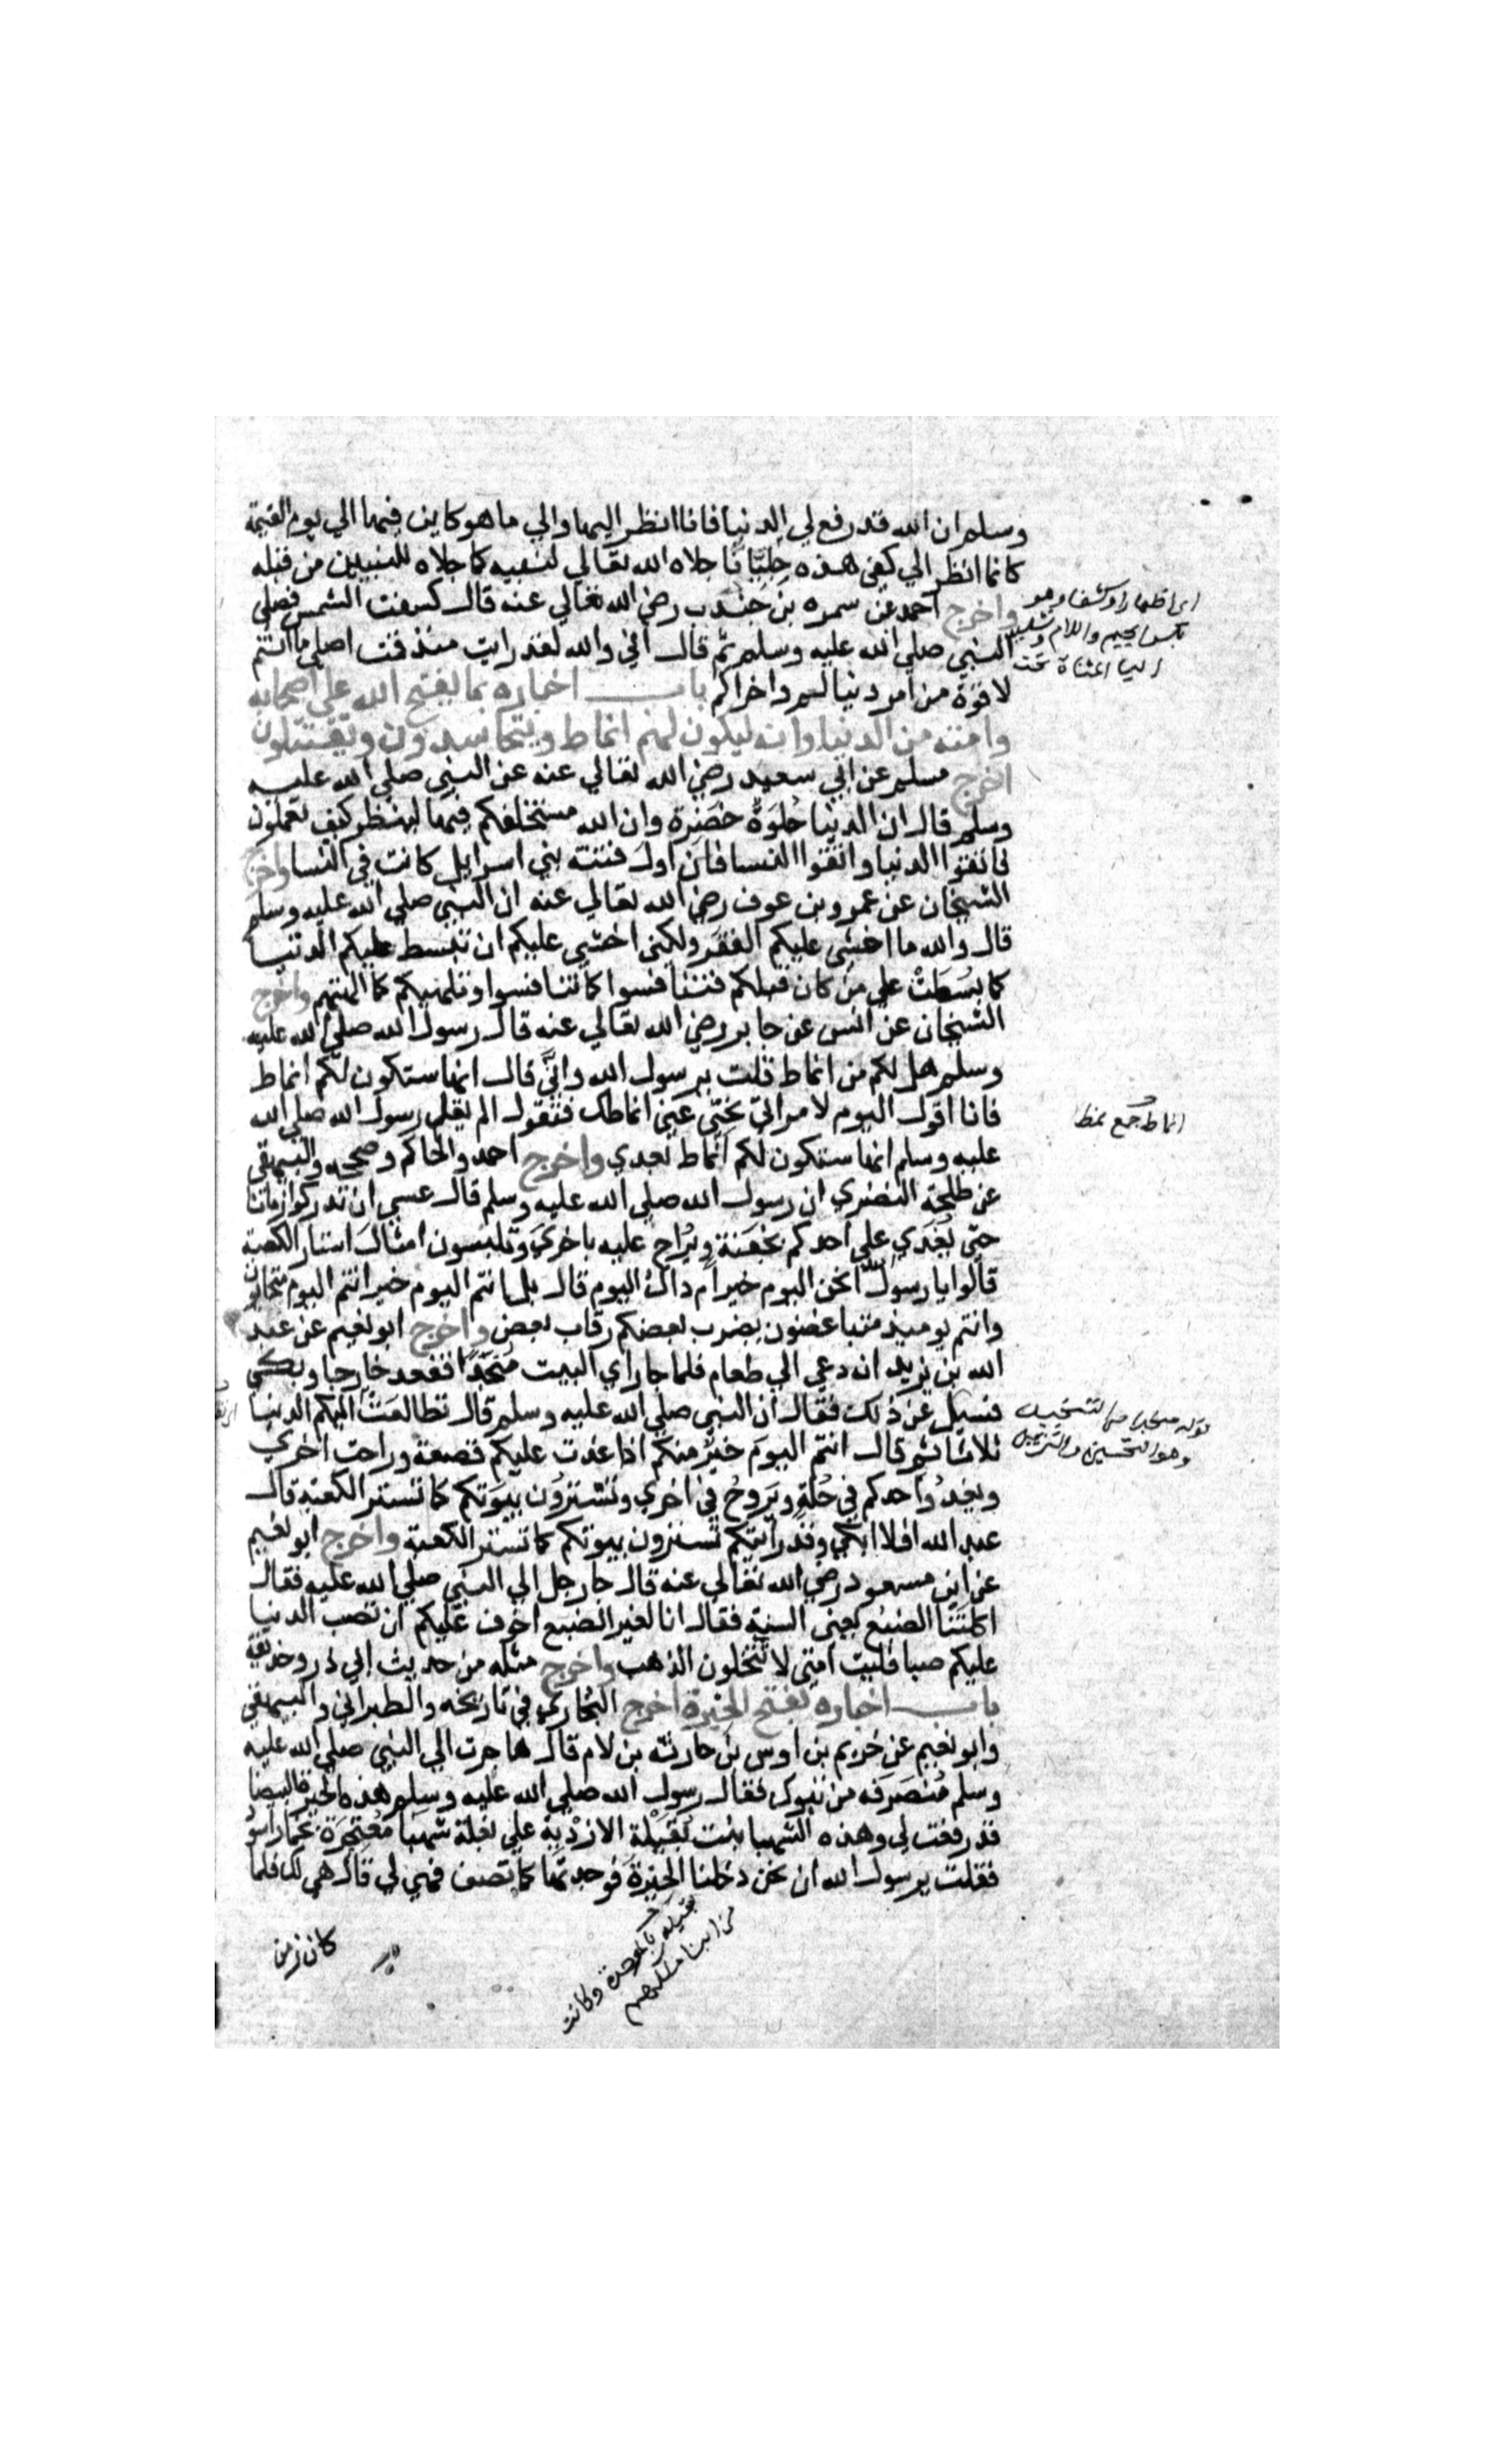 وسلم ان الله قد رفع لي الدنيا فانا انظر اليها والي ما هو كاين فيها الي يوم القيمة
كانما انظر الي كفي هذه جِلِيَّانا جلاه الله تعالي لنبيه كما جلاه للنبيين من قبله
واخرج احمد عن سمره بن جندب رضي الله تعالي عنه قال كسفت الشمس فصلي
النبي صلي الله عليه وسلم ثم قال اني والله لقد رايت منذ قمت اصلي ما انتم
لاقوه من امر دنياكم واخراكم باب اخباره بما يفتح الله علي اصحابه
وامته من الدنيا وانه ليكون لهم انماط ويتحاسدون ويقتتلون
اخرج مسلم عن ابي سعيد رضي الله تعالي عنه عن النبي صلي الله عليه
وسلم قال ان الدنيا حُلوَةٌ خضرة وان الله مستخلفكم فيها لينظر كيف تعملون
فاتقوا الدنيا واتقوا النسا فان اول فتنته بني اسرايل كانت في النسا واخرج
الشيخان عن عمرو بن عوف رضي الله تعالي عنه ان النبي صلي الله عليه وسلم
قال والله ما اخشي عليكم الفقر ولكني اخشي عليكم ان تبسط عليكم الدنيا
كما بُسُطَتْ علي من كان قبلكم فتنافسوا كما تنافسوا وتلهيكم كما الهتهم واخرج
الشيخان عن انس عن جابر رضي الله تعالي عنه قال رسول الله صلي الله عليه
وسلم هل لكم من انماط قلت يرسول الله وانَّي قال انها ستكون لكم انماط
فانا اقول اليوم لامراتي نَحِّي عَنِي انماطك فتقول الم يقل رسول الله صلي الله
عليه وسلم انها ستكون لكم انماط بعدي واخرج احمد والحاكم وصححه والبيهقي
عن طلحة النضري ان رسول الله صلي الله عليه وسلم قال عسي ان تدركوا زمانا
حتي يُغدَي علي احدكم بجفنة ويُراح عليه باخري وتلبسون امثال استار الكعبة
قالوا يا رسول الله انحن اليوم خير ام ذاك اليوم قال بل انتم اليوم خير انتم اليوم متحابون
وانتم يوميذ متباغضون يضرب بعضكم رقاب بعض واخرج ابو نعيم عن عبد
الله بن يزيد ان دعي الي طعام فلما جا راي البيت مُنَجَّدًا فقعد خارجا وبكي
فسيل عن ذلك فقال ان النبي صلي الله عليه وسلم قال تطالعَتْ اليكم الدنيا
ثلاثا ثم قال انتم اليومَ خيرٌ منكم اذا غدت عليكم قصعة وراحت اخري
ويغدُ واحدكم في حُلةٍ ويَروحُ في اخري وتَسْتُرُون بيوتكم كما تستر الكعبة قال
عبد الله افلا ابكي وقد رايتكم تسترون بيوتكم كما تستر الكعبة واخرج ابو نعيم
عن ابن مسعود رضي الله تعالي عنه قال جا رجل الي النبي صلي الله عليه فقال
اكلتنا الضبع يعني السنة فقال انا لغير الضبع اخوف عليكم ان تصب الدنيا
عليكم صبا فليت امتي لا تتحلون الذهب واخرج مثله من حديث ابي ذر وحذيفة
باب اخباره بفتح الحيرة اخرج البخاري في تاريخه والطبراني والبيهقي
وابو نعيم عن خريم بن اوس بن حارثة بن لام قال هاجرت الي النبي صلي الله عليه
وسلم مُنصَرَفه من تبوك فقال رسول الله صلي الله عليه وسلم هذه الحيرة البيضا
قد رفعت لي وهذه الشهبا بنت بُقَيْلة الازدية علي بغلة شهبا مُعْتَجِرَة بخمار اسود
فقلت يرسول الله ان نحن دخلنا الحِيرَةَ فوجدتها كما تصف فهي لي قال هي لك فلما
كان زمن
اي اظهارا وكشفا وهو
بكسر الجيم واللام وتشديد
اليا المثناة تحت
انماط جمع نمط
قوله منجدا من التنجيد
وهو التحسين والتزيين
بقيله بالموحدة وكانت
من ابنا ملوكهم